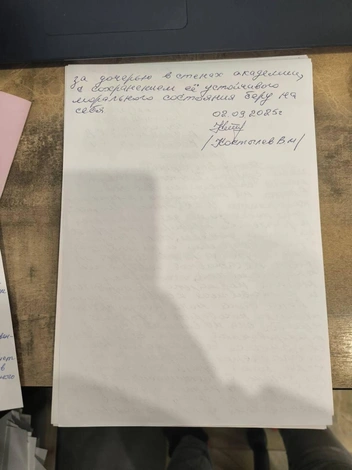 за дочерью в стенах академии,
а сохранением её устойчивого
морального состояния беру на
себя
02.09.2025г
/Костылев В М/